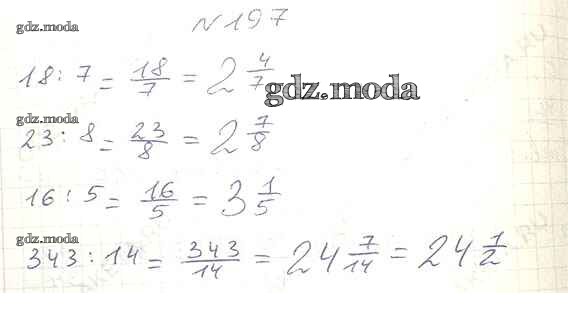 №197
gdz.moda
18 : 7 = 18/7 = 2 4/7
gdz.moda
gdz.moda
23 : 8 = 23/8 = 2 7/8
16 : 5 = 16/5 = 3 1/5
gdz.moda
343 : 14 = 343/14 = 24 7/14 = 24 1/2